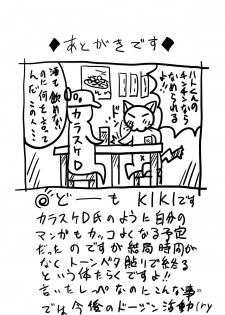 ◆あとがきです◆
ハトくんの
なめられる
よ!!
ド
酒も飲めない
のに何を言って
んだこの人…
カラスケ
D
@どーも KIKIです
カラスケD氏のように自分の
マンガもカッコよくなる予定
だったのですが結局時間が
なくトーンベタ貼りで終る
という体たらくですよ!!
言いたしっぺなのにこんな事
では今後のドージン活動(ry